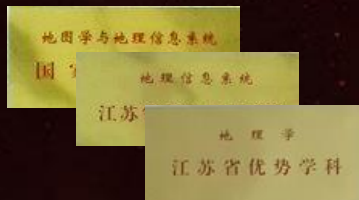 地图学与地理信息系统
国
地理信息系统
江苏
地理学
江苏省优势学科